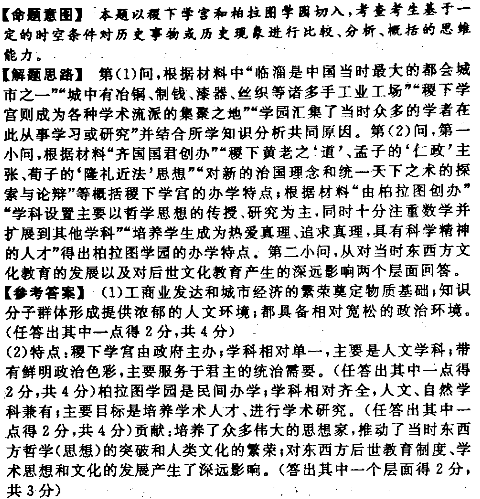 【命题意图】 本题以稷下学宫和柏拉图学园切入,考查考生基于一
定的时空条件对历史事物或历史现象进行比较、分析、概括的思维
能力。
【解题思路】 第(1)问,根据材料中“临淄是中国当时最大的都会城
市之一”“城中有冶铜、制钱、漆器、丝织等诸多手工业工场”“稷下学
宫则成为各种学术流派的集聚之地”“学园汇集了当时众多的学者在
此从事学习或研究”并结合所学知识分析共同原因。第(2)问,第一
小问,根据材料“齐国国君创办”“稷下黄老之‘道’、孟子的‘仁政’主
张、荀子的‘隆礼近法’思想”“对新的治国理念和统一天下之术的探
索与论辩”等概括稷下学宫的办学特点;根据材料“由柏拉图创办”
“学科设置主要以哲学思想的传授、研究为主,同时十分注重数学并
扩展到其他学科”“培养学生成为热爱真理、追求真理,具有科学精神
的人才”得出柏拉图学园的办学特点。第二小问,从对当时东西方文
化教育的发展以及对后世文化教育产生的深远影响两个层面回答。
【参考答案】 (1)工商业发达和城市经济的繁荣奠定物质基础;知识
分子群体形成提供浓郁的人文环境;都具备相对宽松的政治环境。
(任答出其中一点得2分,共4分)
(2)特点:稷下学宫由政府主办;学科相对单一,主要是人文学科;带
有鲜明政治色彩,主要服务于君主的统治需要。(任答出其中一点得
2分,共4分)柏拉图学园是民间办学;学科相对齐全,人文、自然学
科兼有;主要目标是培养学术人才、进行学术研究。(任答出其中一
点得2分,共4分)贡献:培养了众多伟大的思想家,推动了当时东西
方哲学(思想)的突破和人类文化的繁荣;对东西方后世教育制度、学
术思想和文化的发展产生了深远影响。(答出其中一个层面得2分,
共3分)